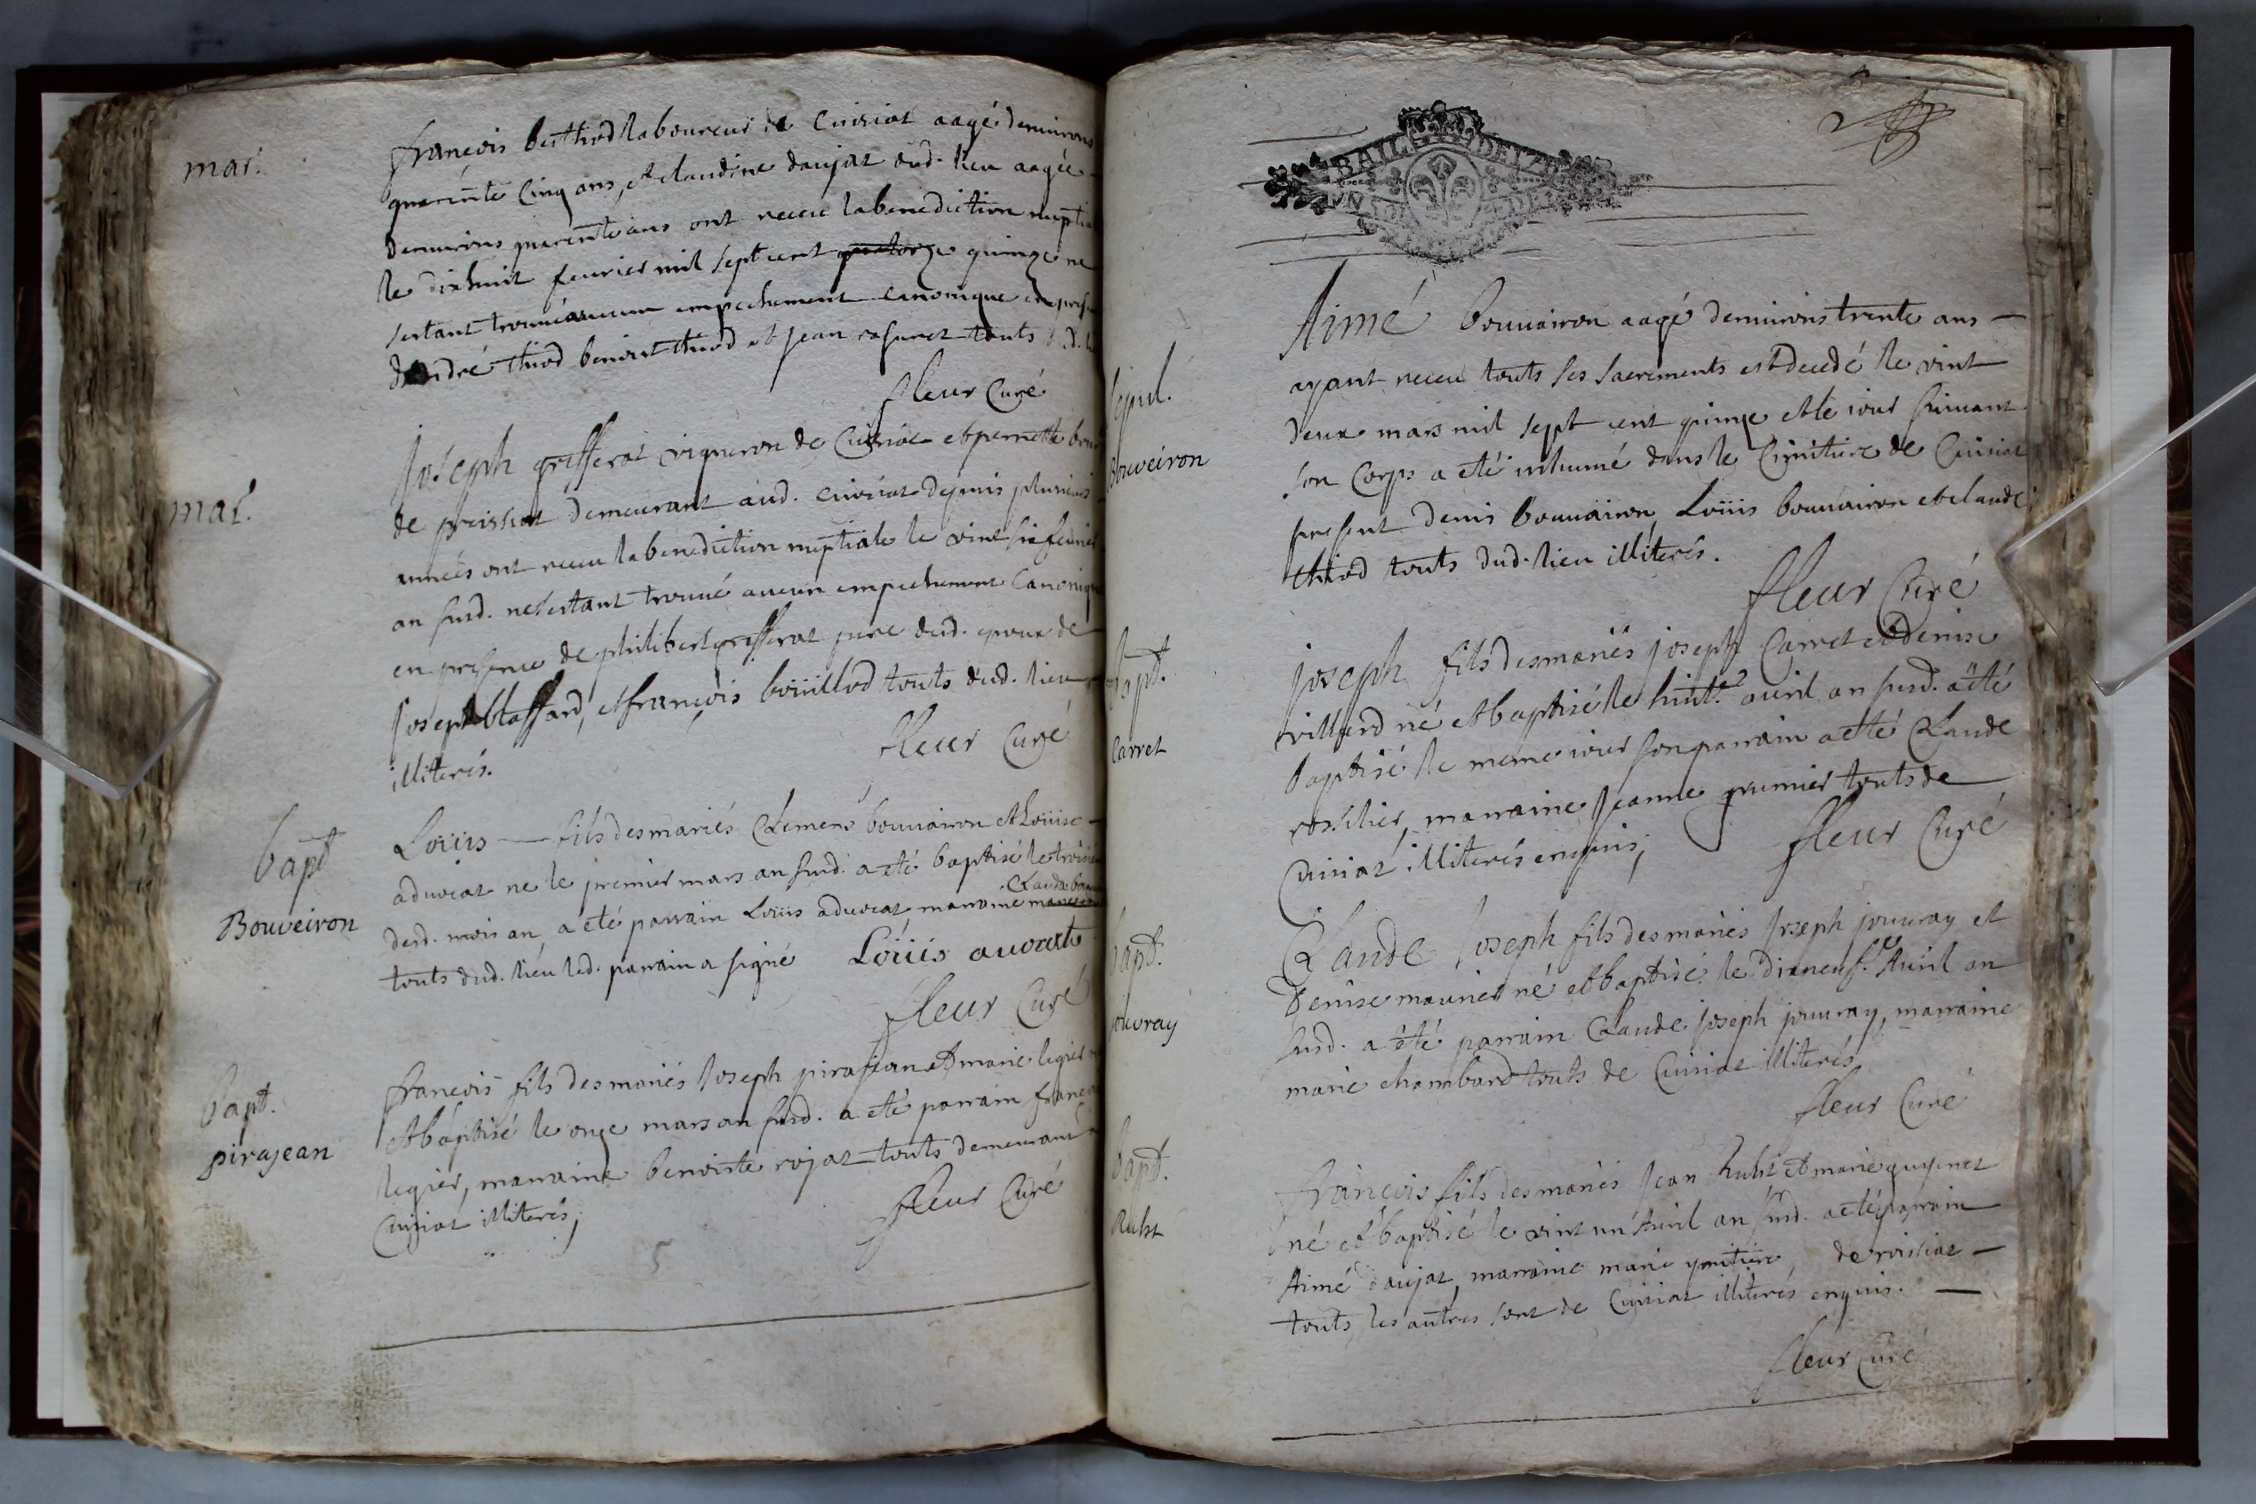 mar.
françois berthod laboureur de Cuisiat aagé denuirons
quarente Cinq ans, et claudine daujat dud. lieu aagée
denuirons quarente ans ont receu la benediction nuptia
le dixhuit feurier mil sept cent quatorze quinze ne
sestant trouué aucun empechement canonique en prese
dandré thiod benoist thiod et Jean
touts dud.
fleur Curé
mar.
Joseph grifferat vigneron de Cuisiat et pernette
de preissiat demeurant aud. cuisiat depuis plusieurs
années ont receu la benediction nuptiale le vint six feurier
an susd. ne sestant trouué aucun empechement Canonique
en presence de philibert grifferat pere dud. epoux de
Joseph blaffard, et françois bouillod touts dud. lieu
illiterés.
fleur Curé
bapt
Bouveiron
Loüis fils des mariés Clemens bouuairon et Loüise
aduocat ne le premier mars an susd. a eté baptisé le troisie
dud. mois an, a eté parrain Loüis aduocat, marraine
Clauda
touts dud. lieu led. parrain a signé Loüis auocat
fleur Curé
bapt.
pirajean
françois fils des mariés Joseph pirajean et marie legier
et baptisé le onze mars an susd. a eté parrain françois
legier, marraine benoiste rojat touts demeurant
Cuisiat illiterés;
fleur Curé
5
BAIL DE 1715
Sepul.
Bouveiron
Aimé bouuairon aagé denuirons trente ans
ayant receu touts ses sacrements est decedé le vint
deux mars mil sept cent quinze et le iour suiuant
son Corps a eté inhumé dans le Cimitiere de Cuisiat
present denis bouuairon, Loüis bouuairon et claude
thiod touts dud. lieu illiterés.
fleur Curé
bapt.
Carret
Joseph fils des mariés Joseph Carret et denise
villard né et baptisé le huit.e auril an susd. a eté
baptisé le meme iour son parrain a eté Claude
rossilier, marraine Jeanne premier touts de
Cuisiat illiterés enquis;
fleur Curé
bapt.
jouvray
Claude Joseph fils des mariés Joseph jouuray et
Denise maunier né et baptisé le dixneuf.e Auril an
susd. a eté parrain Claude Joseph jouuray, marraine
marie chambard touts de Cuisiat illiterés
fleur Curé
bapt.
Ruht
françois fils des mariés Jean et marie guyenet
né et baptisé le vint un Auril an susd. a eté parrain
Aimé daujat, marraine marie de roissiat
touts les autres sont de Cuisiat illiterés enquis.
fleur Curé